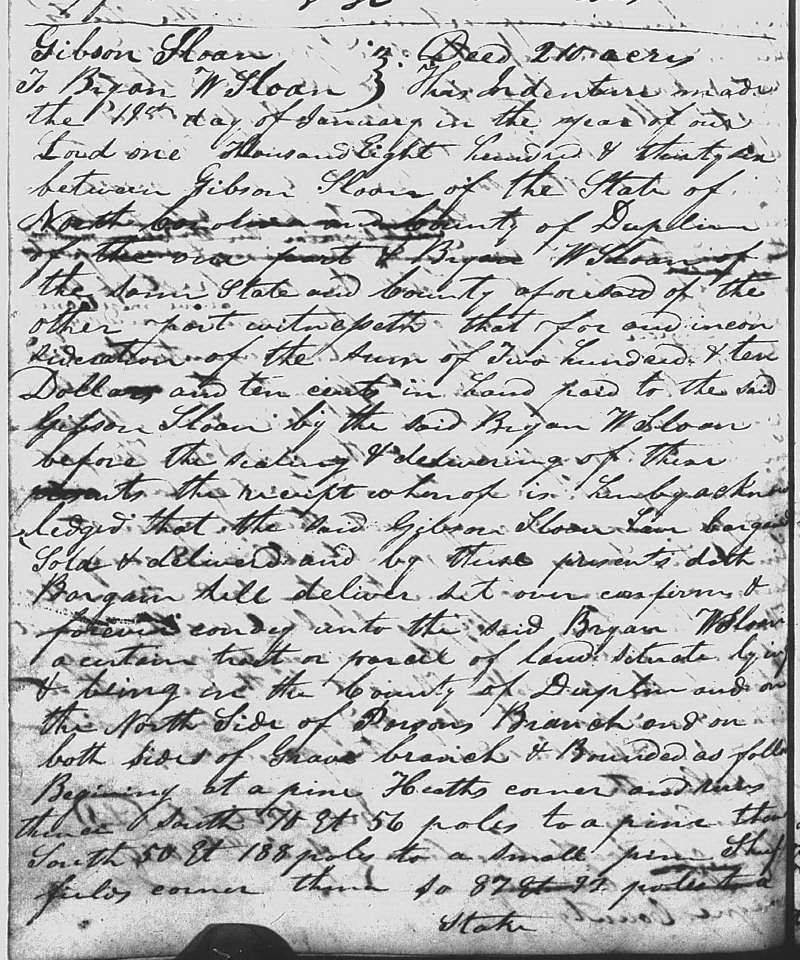 Gibson Sloan } Deed 210 acres
To Bryan W Sloan } This Indenture made
the 19st day of January in the year of our
Lord one Thousand Eight hundred & thirty six
between Gibson Sloan of the State of
North Carolina and County of Duplin
of the one part & Bryan W Sloan of
the same State and County aforesaid of the
other part witnesseth that for and incon
sideration of the sum of Two hundred & ten
Dollars and ten cents in hand paid to the said
Gibson Sloan by the said Bryan W Sloan
before the sealing & delivering of these
presents the receipt whereof is hereby acknow
ledged that the said Gibson Sloan has bargaind
Sold & deliverd and by these presents doth
Bargain sell deliver set over confirm &
forever convey unto the said Bryan W Sloan
a certain tract or parcel of land situate lying
& being in the County of Duplin and on
the North Side of Parsons Branch and on
both sides of Grave branch & Bounded as follows
Begining at a pine Heaths corner and runs
thence South 70 Et 56 poles to a pine then
South 50 Et 188 poles to a small pine Shef
fields corner then So 87 Et 94 poles to a
Stake